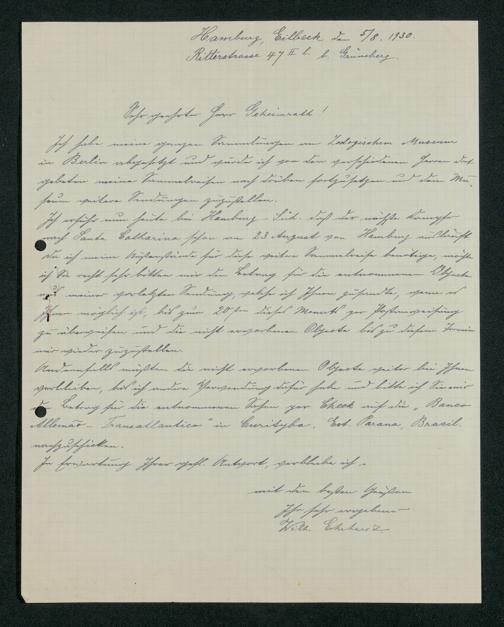 Hamburg, Eilbeck den 5/8. 1930.
Ritterstrasse 47 II l. b. Grüneberg.
Sehr geehrter Herr Geheimrath!
Ich habe meine ganzen Sammlungen am Zoologischen Museum
in Berlin abgesetzt und würde ich von den verschiedenen Herren dort
gebeten meine Sammelreisen nach drüben fortzusetzen und dem Mu-
seum weitere Sendungen zuzustellen.
Ich erfuhr nun heute bei Hamburg-Süd. daß der nächste Dampfer
nach Santa Catharina schon am 23 August von Hamburg ausläuft
Da ich meine Außenstände für diese weitere Sammelreise benötige, möchte
ich Sie recht sehr bitten mir den Betrag für die entnommenen Objekte
aus meiner vorletzten Sendung, welche ich Ihnen zusandte, wenn es
Ihnen möglich ist, bis zum 20ten dieses Monats per Postanweisung
zu überweisen und die nicht erworbenen Objekte bis zu diesem Termin
mir wieder zuzustellen.
Andernfalls müßten die nicht erworbenen Objekte weiter bei Ihnen
verbleiben, bis ich andere Verwendung dafür habe und bitte ich Sie mir
den Betrag für die entnommenen Sachen per Check auf die „Banco
Allemão-Transatlantico" in Curityba, Est. Parana, Brasil
nachzuschicken.
In Erwartung Ihrer gefl. Antwort, verbleibe ich.
mit den besten Grüßen
Ihr sehr ergebener
Wilh. Ehrhardt